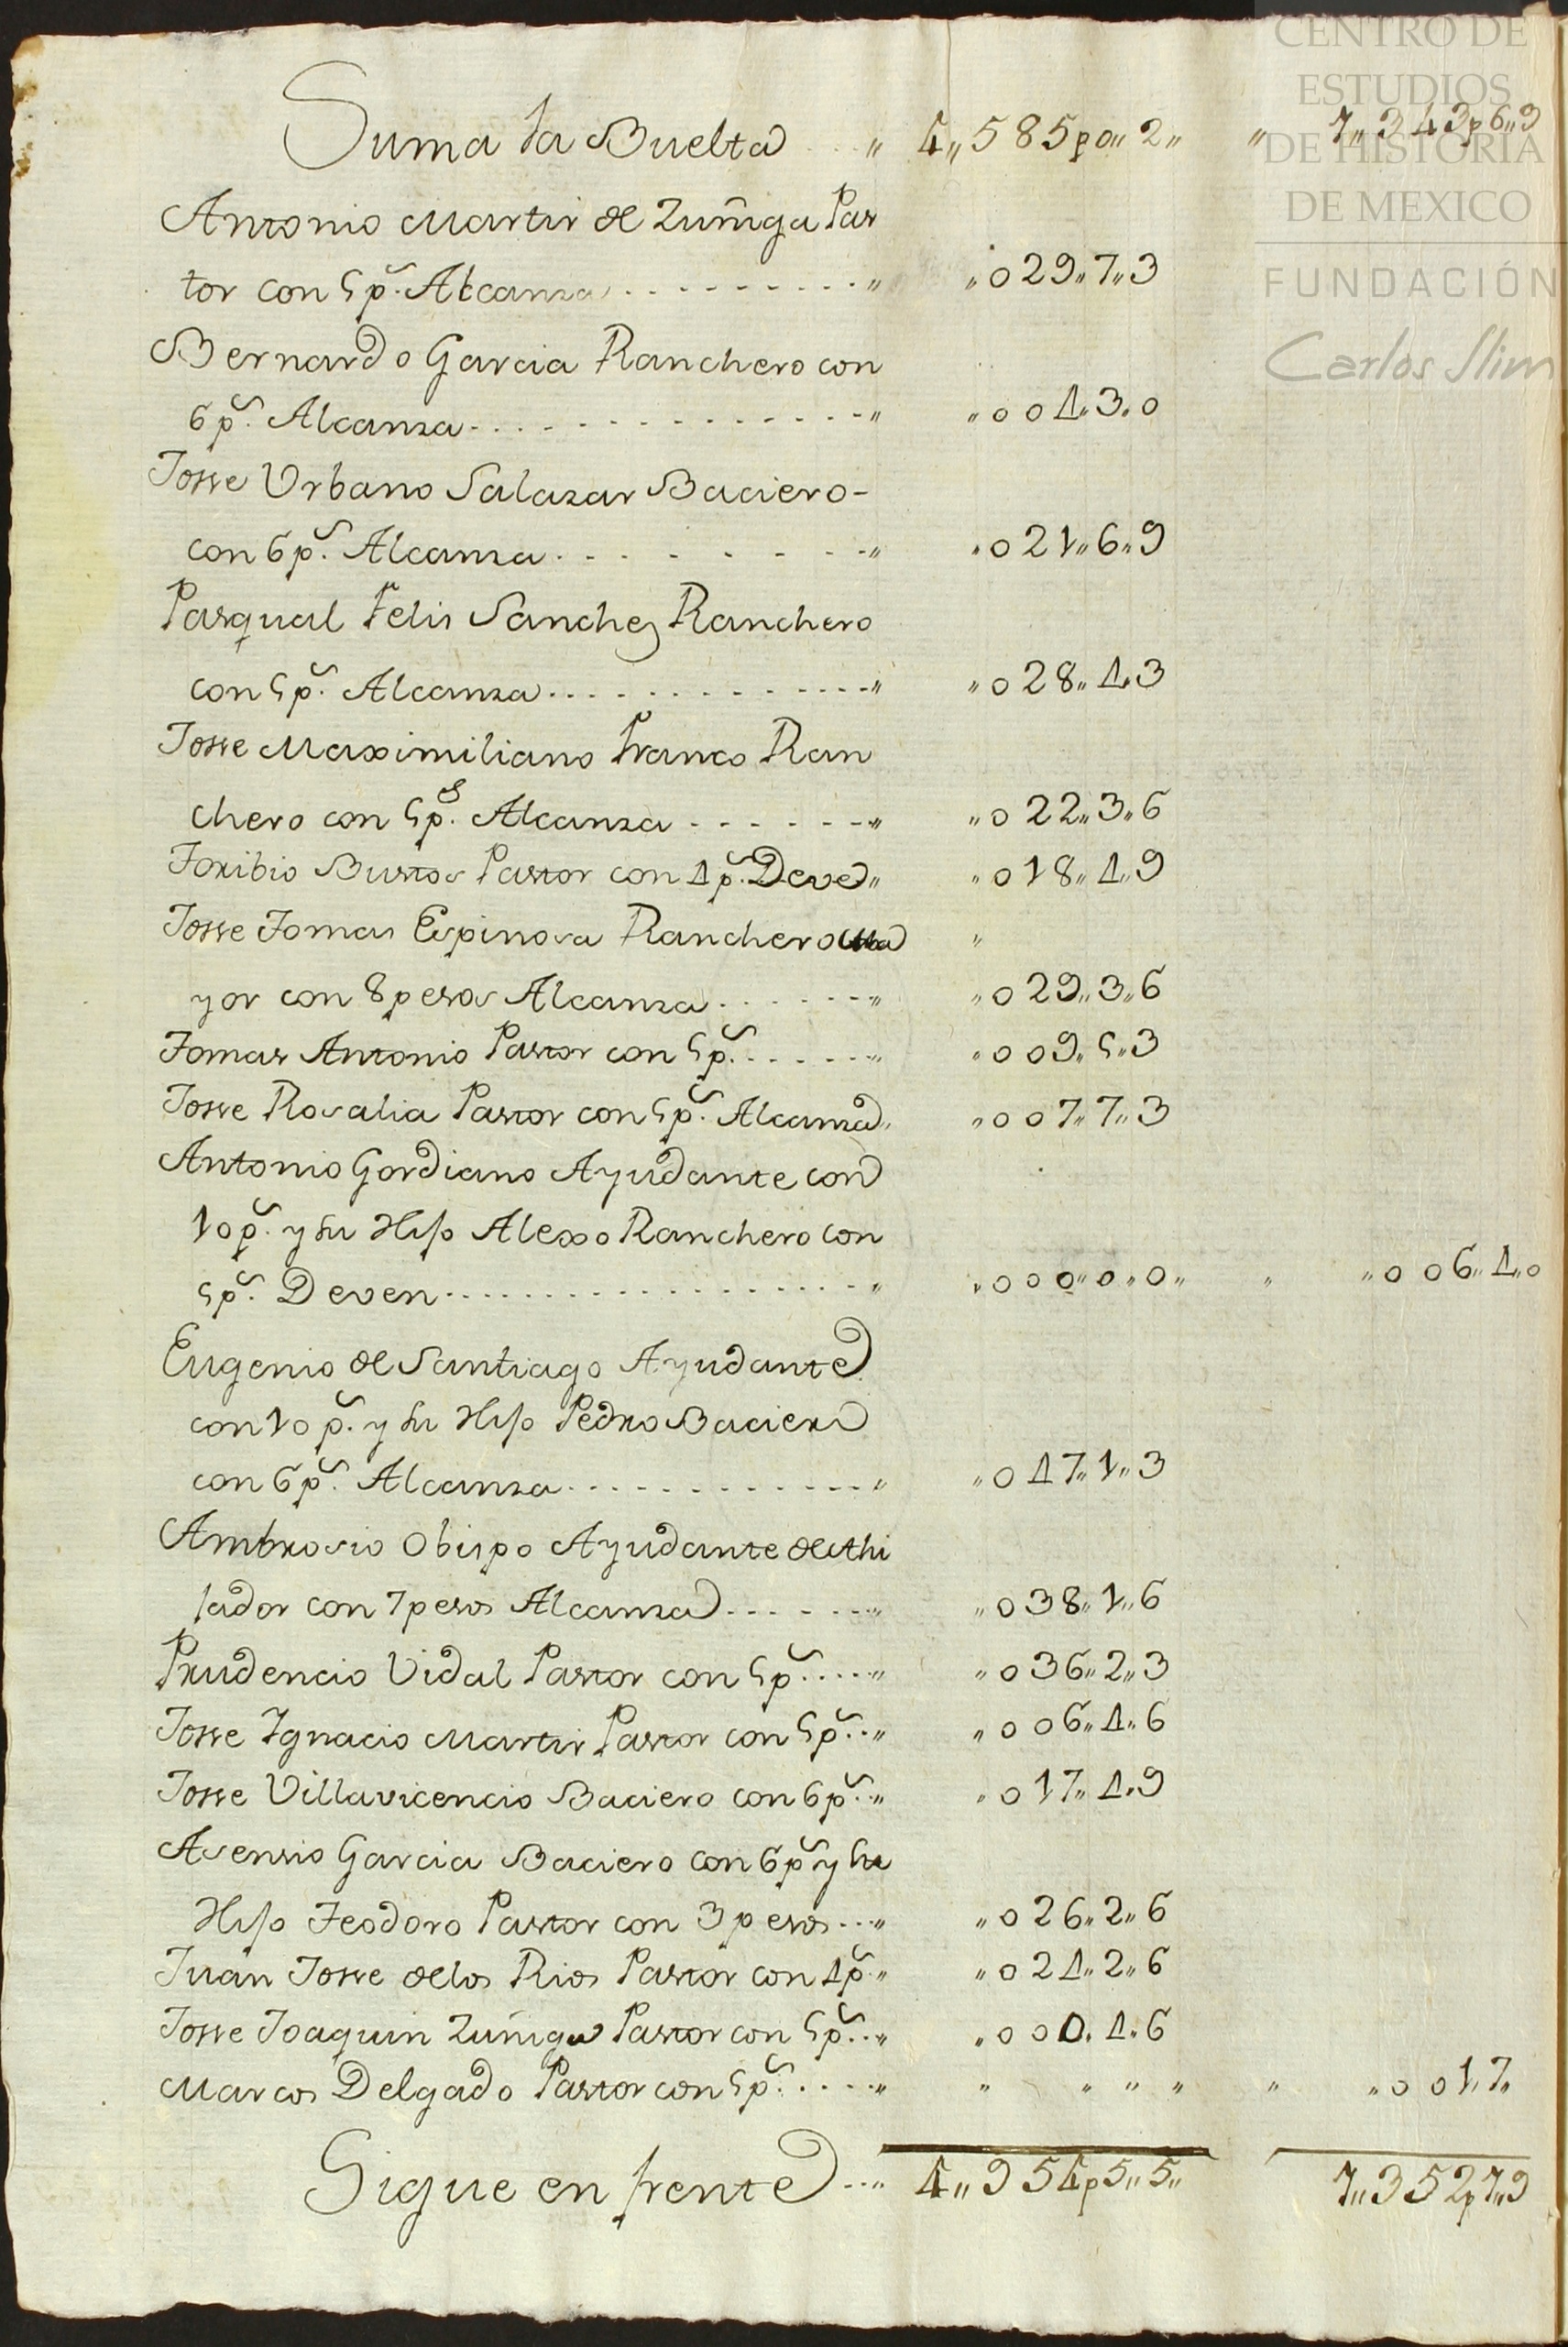 Suma la Buelta „ 4„585p0„2„ „ 1„343p6„9
Antonio Martir de Zuñiga Pas
tor con 5 p.s Alcansa . . . . . . . . . . „ „029„7„3
Bernardo Garcia Ranchero con
6 p.s Alcansa . . . . . . . . . . . . . „ „004„3„0
Josse Urbano Salazar Baciero-
con 6 p.s Alcansa . . . . . . . . . „ „021„6„9
Pasqual Felis Sanchez Ranchero
con 5 p.s Alcansa . . . . . . . . . . . . „ „028„4„3
Josse Maximiliano Franco Ran
chero con 5 p.s Alcansa . . . . . . „ „022„3„6
Toribio Bustos Pastor con 4 p.s Deve „ „018„4„9
Josse Tomas Espinosa Ranchero Ma „
yor con 8 pesos Alcansa . . . . . . „ „029„3„6
Tomas Antonio Pastor con 5 p.s . . . . . . „ „009„5„3
Josse Rosalia Pastor con 5 p.s Alcansa „ „007„7„3
Antonio Gordiano Ayudante con
10 p.s y su Hijo Alexo Ranchero con
5 p.s Deven . . . . . . . . . . . . . . . . „ „000„0„0„ „ „006„4„0
Eugenio de Santiago Ayudante
con 10 p.s y su Hijo Pedro Baciero
con 6 p.s Alcansa . . . . . . . . . . . . „ „047„1„3
Ambrosio Obispo Ayudante de Ahi
jador con 7 pesos Alcansa . . . . . . „ „038„1„6
Prudencio Vidal Pastor con 5 p.s . . . . „ „036„2„3
Josse Ygnacio Martir Pastor con 5 p.s . . „ „006„4„6
Josse Villavicencio Baciero con 6 p.s . „ „017„4„9
Asensio Garcia Baciero con 6 p.s y su
Hijo Teodoro Pastor con 3 pesos . . . „ „026„2„6
Juan Josse de los Rios Pastor con 4 p.s „ „024„2„6
Josse Joaquin Zuñiga Pastor con 5 p.s . . „ „000„4„6
Marcos Delgado Pastor con 5 p.s . . . . . „ „ „ „ „ „ „001„7„
Sigue en frente . . . 4„954p5„5„ 1„352p1„9
CENTRO DE
ESTUDIOS
DE HISTORIA
DE MEXICO
FUNDACIÓN
Carlos Slim